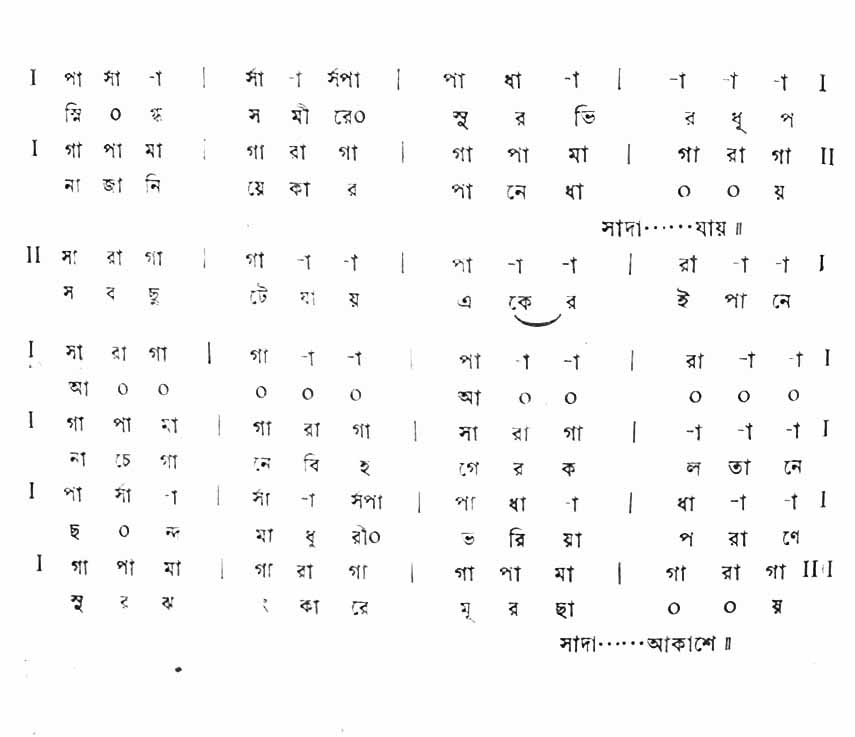 I পা র্সা -া | র্সা -া র্সপা | পা ধা -া | -া -া -া I
স্নি ০ গ্ধ স মী রে০ সু র ভি র ধূ প
I গা পা মা | গা রা গা | গা পা মা | গা রা গা II
না জা নি য়ে কা র পা নে ধা ০ ০ য়
সাদা······যায়॥
II সা রা গা | গা -া -া | পা -া -া | রা -া -া I
স ব ছু টে যা য় এ কে র ই পা নে
I সা রা গা | গা -া -া | পা -া -া | রা -া -া I
আ ০ ০ ০ ০ ০ আ ০ ০ ০ ০ ০
I গা পা মা | গা রা গা | সা রা গা | -া -া -া I
না চে গা নে বি হ গে র ক ল তা নে
I পা র্সা -া | র্সা -া র্সপা | পা ধা -া | ধা -া -া I
ছ ০ ন্দ মা ধু রী০ ভ রি য়া প রা ণে
I গা পা মা | গা রা গা | গা পা মা | গা রা গা II I
সু র ঝ ং কা রে মূ র ছা ০ ০ য়
সাদা······আকাশে॥